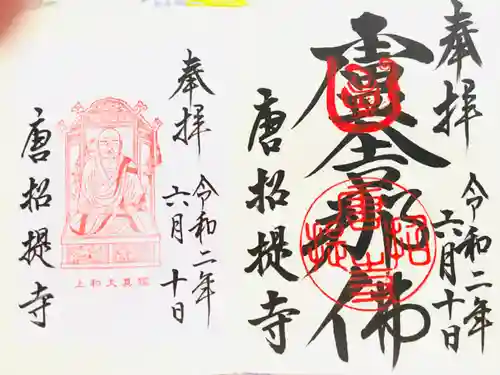 奉拝
令和二年
六月十日
盧舎那佛
唐招提寺
奉拝
令和二年
六月十日
唐招提寺
上和大真鑑